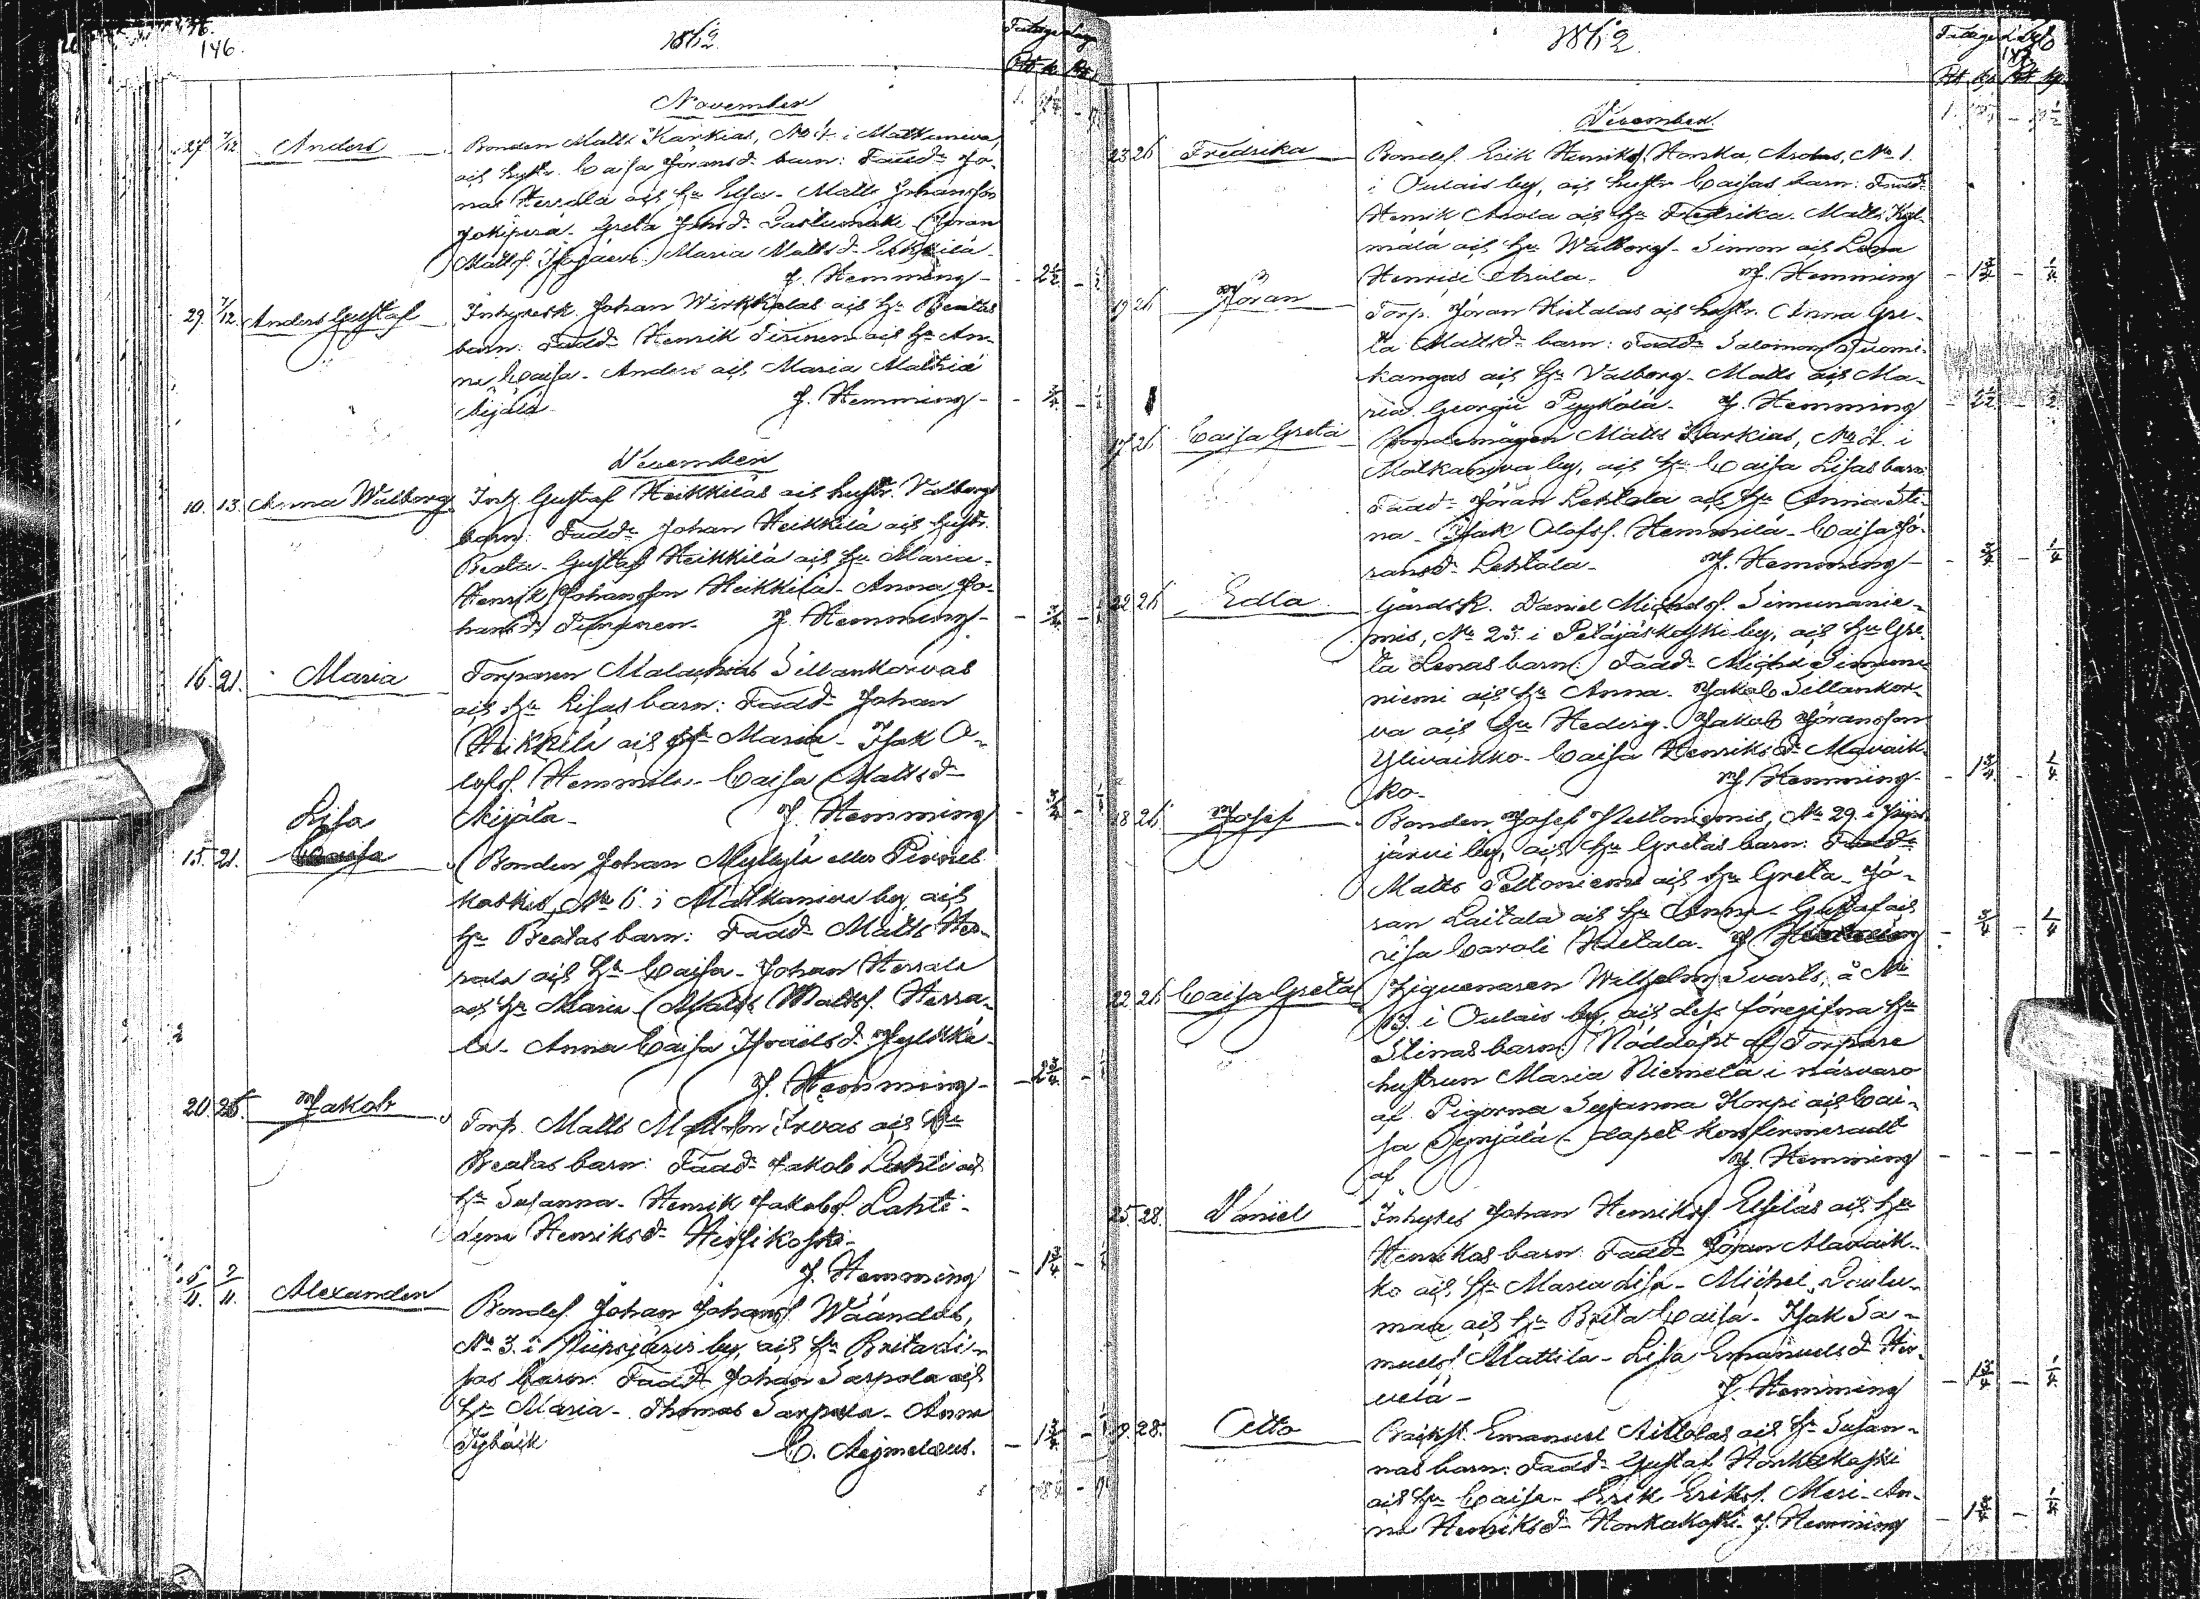 146.
1862.
November
27. 7/12 Anders
Bonden Matts Karkias, No 4. i Matkaniva
och hustr. Caisa Jöransd. barn: Fadd. Jo-
nas Herrala och h. Elsa. Matts Johansson
Jokiperä. Greta
Maria Mattsd.
J. Hemming - 2½
29. 7/12. Anders Gustaf
Inhyresk. Johan Wirkkalas och h. Beatas
barn: Fadd. Henrik Tirinen och h. An-
na Caisa. Anders och Maria Matthiæ
Äijälä. J. Hemming -
December
10. 13. Anna Walborg
Inh. Gustaf Heikkiläs och hustr. Valborgs
barn: Fadd. Johan Heikkilä och hustr.
Beata. Gustaf Heikkilä och h. Maria.
Henrik Johansson Heikkilä. Anna Jo-
hansd. J. Hemming -
16. 21. Maria
Torparen Malachias Sillankorvas
och h. Lisas barn: Fadd. Johan
Heikkilä och h. Maria. Isak O-
lofss. Hemmilä. Caisa Mattsd.
Äijälä. J. Hemming
15. 21. Lisa
Bonden Johan Mylylä eller Pirnes-
koskis, No 6. i Matkaniva by, och
h. Beatas barn: Fadd. Matts Her-
rala och h. Caisa. Johan Herrala
och h. Maria. Matts Mattss. Herra-
la. Anna Caisa Israelsd.
J. Hemming - 2¾
20. 26. Jakob
Torp. Matts Mattsson Irvas och h.
Beatas barn: Fadd. Jakob Lahti och
h. Susanna. Henrik Jakobs. Lahti.
Lena Henriksd. Hirsikoski.
J. Hemming - 1¾
5/11. 7/11. Alexander
Bondes. Johan Johanss. Wäändas,
No 3. i Piipsjärvi by, och h. Brita Li-
sas barn: Fadd. Johan Sarpola och
h. Maria. Thomas Sarpola. Anna
C. Aejmelæus. - 1¾
1862.
147
December.
23 26 Fredrika
Bondes. Erik Henrikss. Honka, Arolas, No 1.
i Oulais by, och hustr. Caisas barn: Fadd.
Henrik Arola och h. Fredrika. Matts Kyl-
mälä och h. Walborg. Simon och Lena
Henrici Arola. J. Hemming - 1¾ - ¼
19 26 Jöran
Torp. Jöran Hietalas och hustr. Anna Gre-
ta Mattsd. barn: Fadd. Salomon Tuomi-
kangas och h. Valborg. Matts och Ma-
ria Georgii Pyykölä. J. Hemming - 2½ - ½
17 26 Caisa Greta
Bondemågen Matts Karkias, No 4. i
Matkaniva by, och h. Caisa Lisas barn:
Fadd. Jöran Lehtola och h. Anna Sti-
na. Isak Olofss. Hemmilä. Caisa Jö-
ransd. Lehtola. J. Hemming - ¾ - ¼
22 26 Edla
Gårdsk. Daniel Michelss. Simunanie-
mis, No 25. i Petäjäskoski by, och h. Gre-
ta Lenas barn: Fadd. Michel Simuna-
niemi och h. Anna. Jakob Sillankor-
va och h. Hedvig. Jakob Jöransson
Ylivaikko. Caisa Henriksd. Alavaik-
ko. J. Hemming - 1¾ - ¼
18 26 Josef
Bonden Josef Peltoniemis, No 29. i Piips-
järvi by, och h. Gretas barn: Fadd.
Matts Peltoniemi och h. Greta. Jö-
ran Laitala och h. Anna. Gustaf och
Caroli Hietala. J. Hemming - ¾ - ¼
22 26 Caisa Greta
Ziguenaren Wilhelm Svarts, å No
13. i Oulais by, och dess föregifna h.
Stinas barn: Nöddöpt af Torpare
hustrun Maria Niemelä i närvaro
af Pigorna Susanna Korpi och Cai-
sa dopet konfirmeradt
af J. Hemming - - - -
25. 28. Daniel
Inhyres Johan Henrikss. Elfiläs och h.
Henrikas barn: Fadd. Jöran Alavaik-
ko och h. Maria Lisa. Michel Oulu-
maa och h. Brita Caisa. Isak Sa-
muelss. Mattila. Lisa Emanuelsd. Hir-
velä. J. Hemming - 1¾ - ¼
19. 28. Otto
Emanuel Aittolas och h. Susan-
nas barn: Fadd. Gustaf Honkakoski
och h. Caisa. Erik Erikss. Meri. An-
na Henriksd. Honkakoski. J. Hemming - 1¾ - ¼